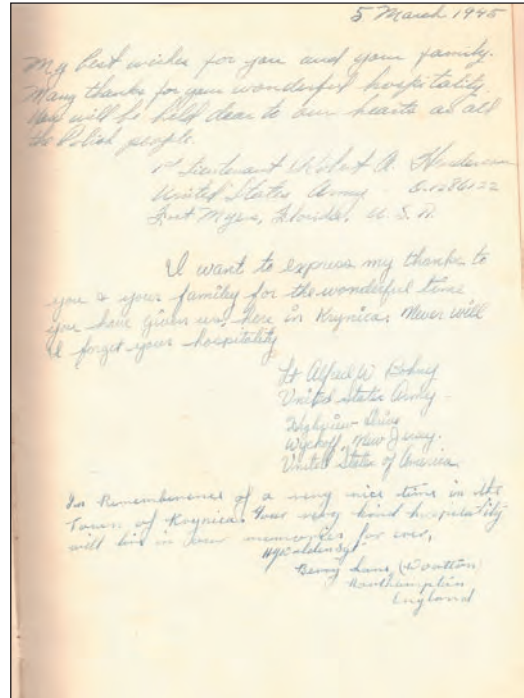 5 March 1945
My best wishes for you and your family.
Many thanks for your wonderful hospitality.
You will be held dear to our hearts as all
the Polish people.
1st Lieutenant Robert A. Henderson
United States Army O-1286122
Fort Myers, Florida, U.S.A.
I want to express my thanks to
you & your family for the wonderful time
you have given us, here in Krynica. Never will
I forget your hospitality
Lt Alfred W Bohny
United States Army -
Highview Drive
Wyckoff, New Jersey.
United States of America
In Rememberence of a very nice time in the
Town of Krynica. Your very kind hospitality
will live in our memories for ever,
Berry Lane (Wootton)
Northampton
England